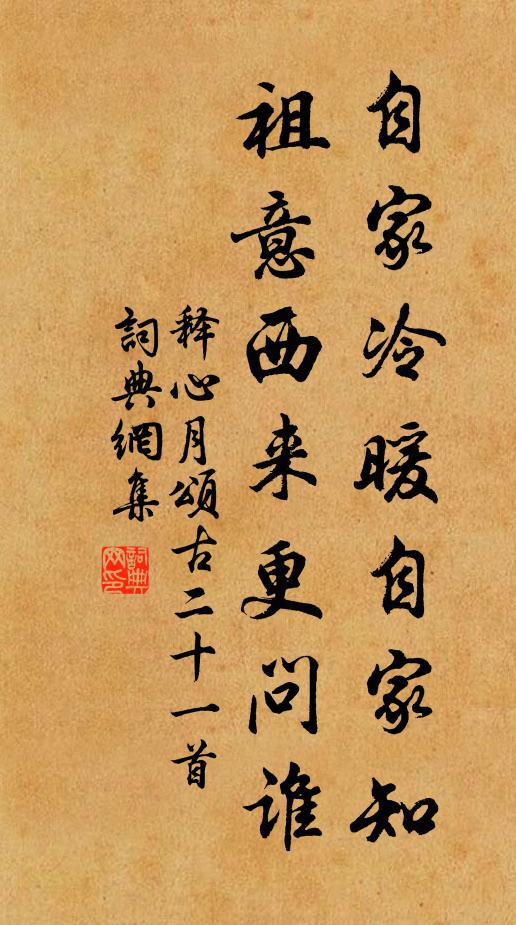 自家冷暖自家知
祖意西来更问谁
释心月頌古二十一首
詞典網集
詞典网印